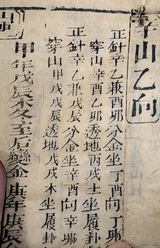 辛山乙向
正針辛乙兼酉卯分金坐丁酉向丁卯
穿山辛酉乙卯透地丙戌土坐履卦
正針辛乙兼戌辰分金坐辛酉向辛卯
穿山甲戌戊辰透地戊戌木坐履卦
甲年戊辰木冬至后金庚年庚辰